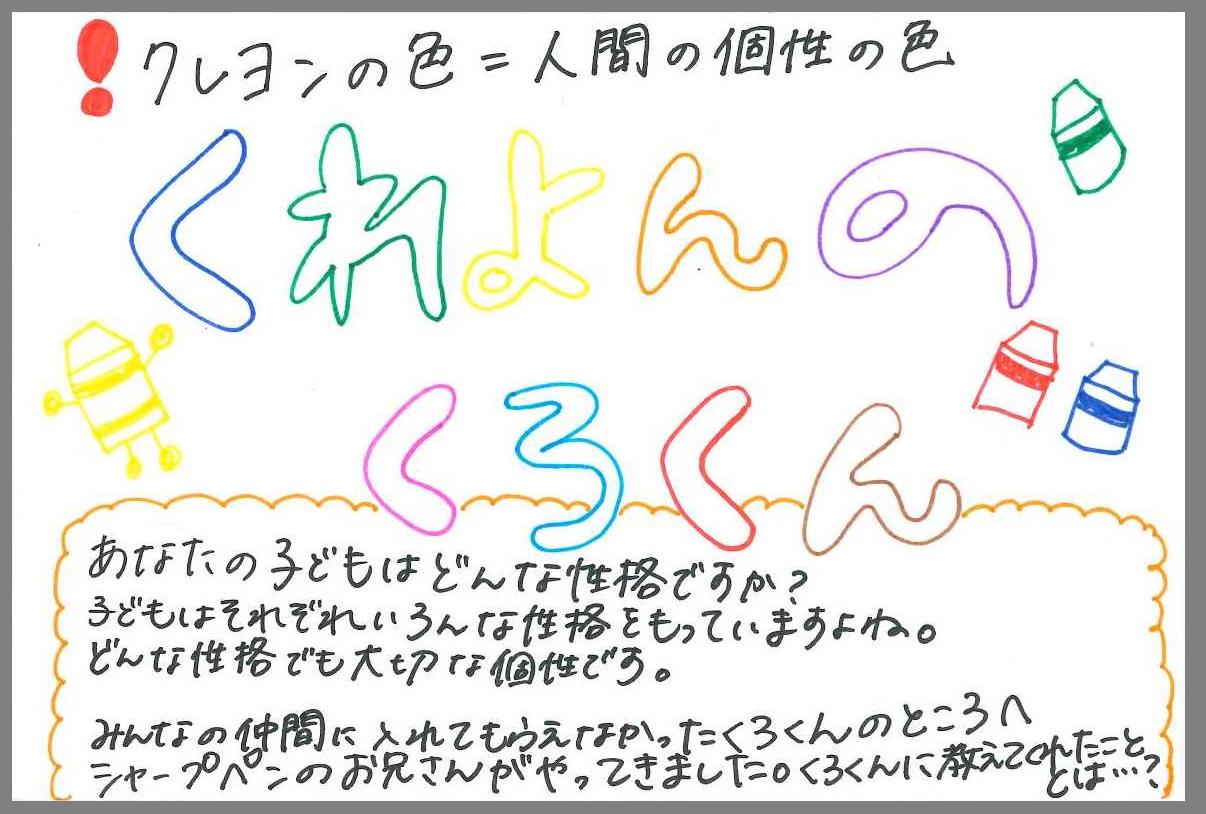 ❗クレヨンの色=人間の個性の色
くれよんの
くろくん
あなたの子どもはどんな性格ですか?
子どもはそれぞれいろんな性格をもっていますよね。
どんな性格でも大切な個性です。
みんなの仲間に入れてもらえなかったくろくんのところへ
シャープペンのお兄さんがやってきました。くろくんに教えてくれたこと
とは…?